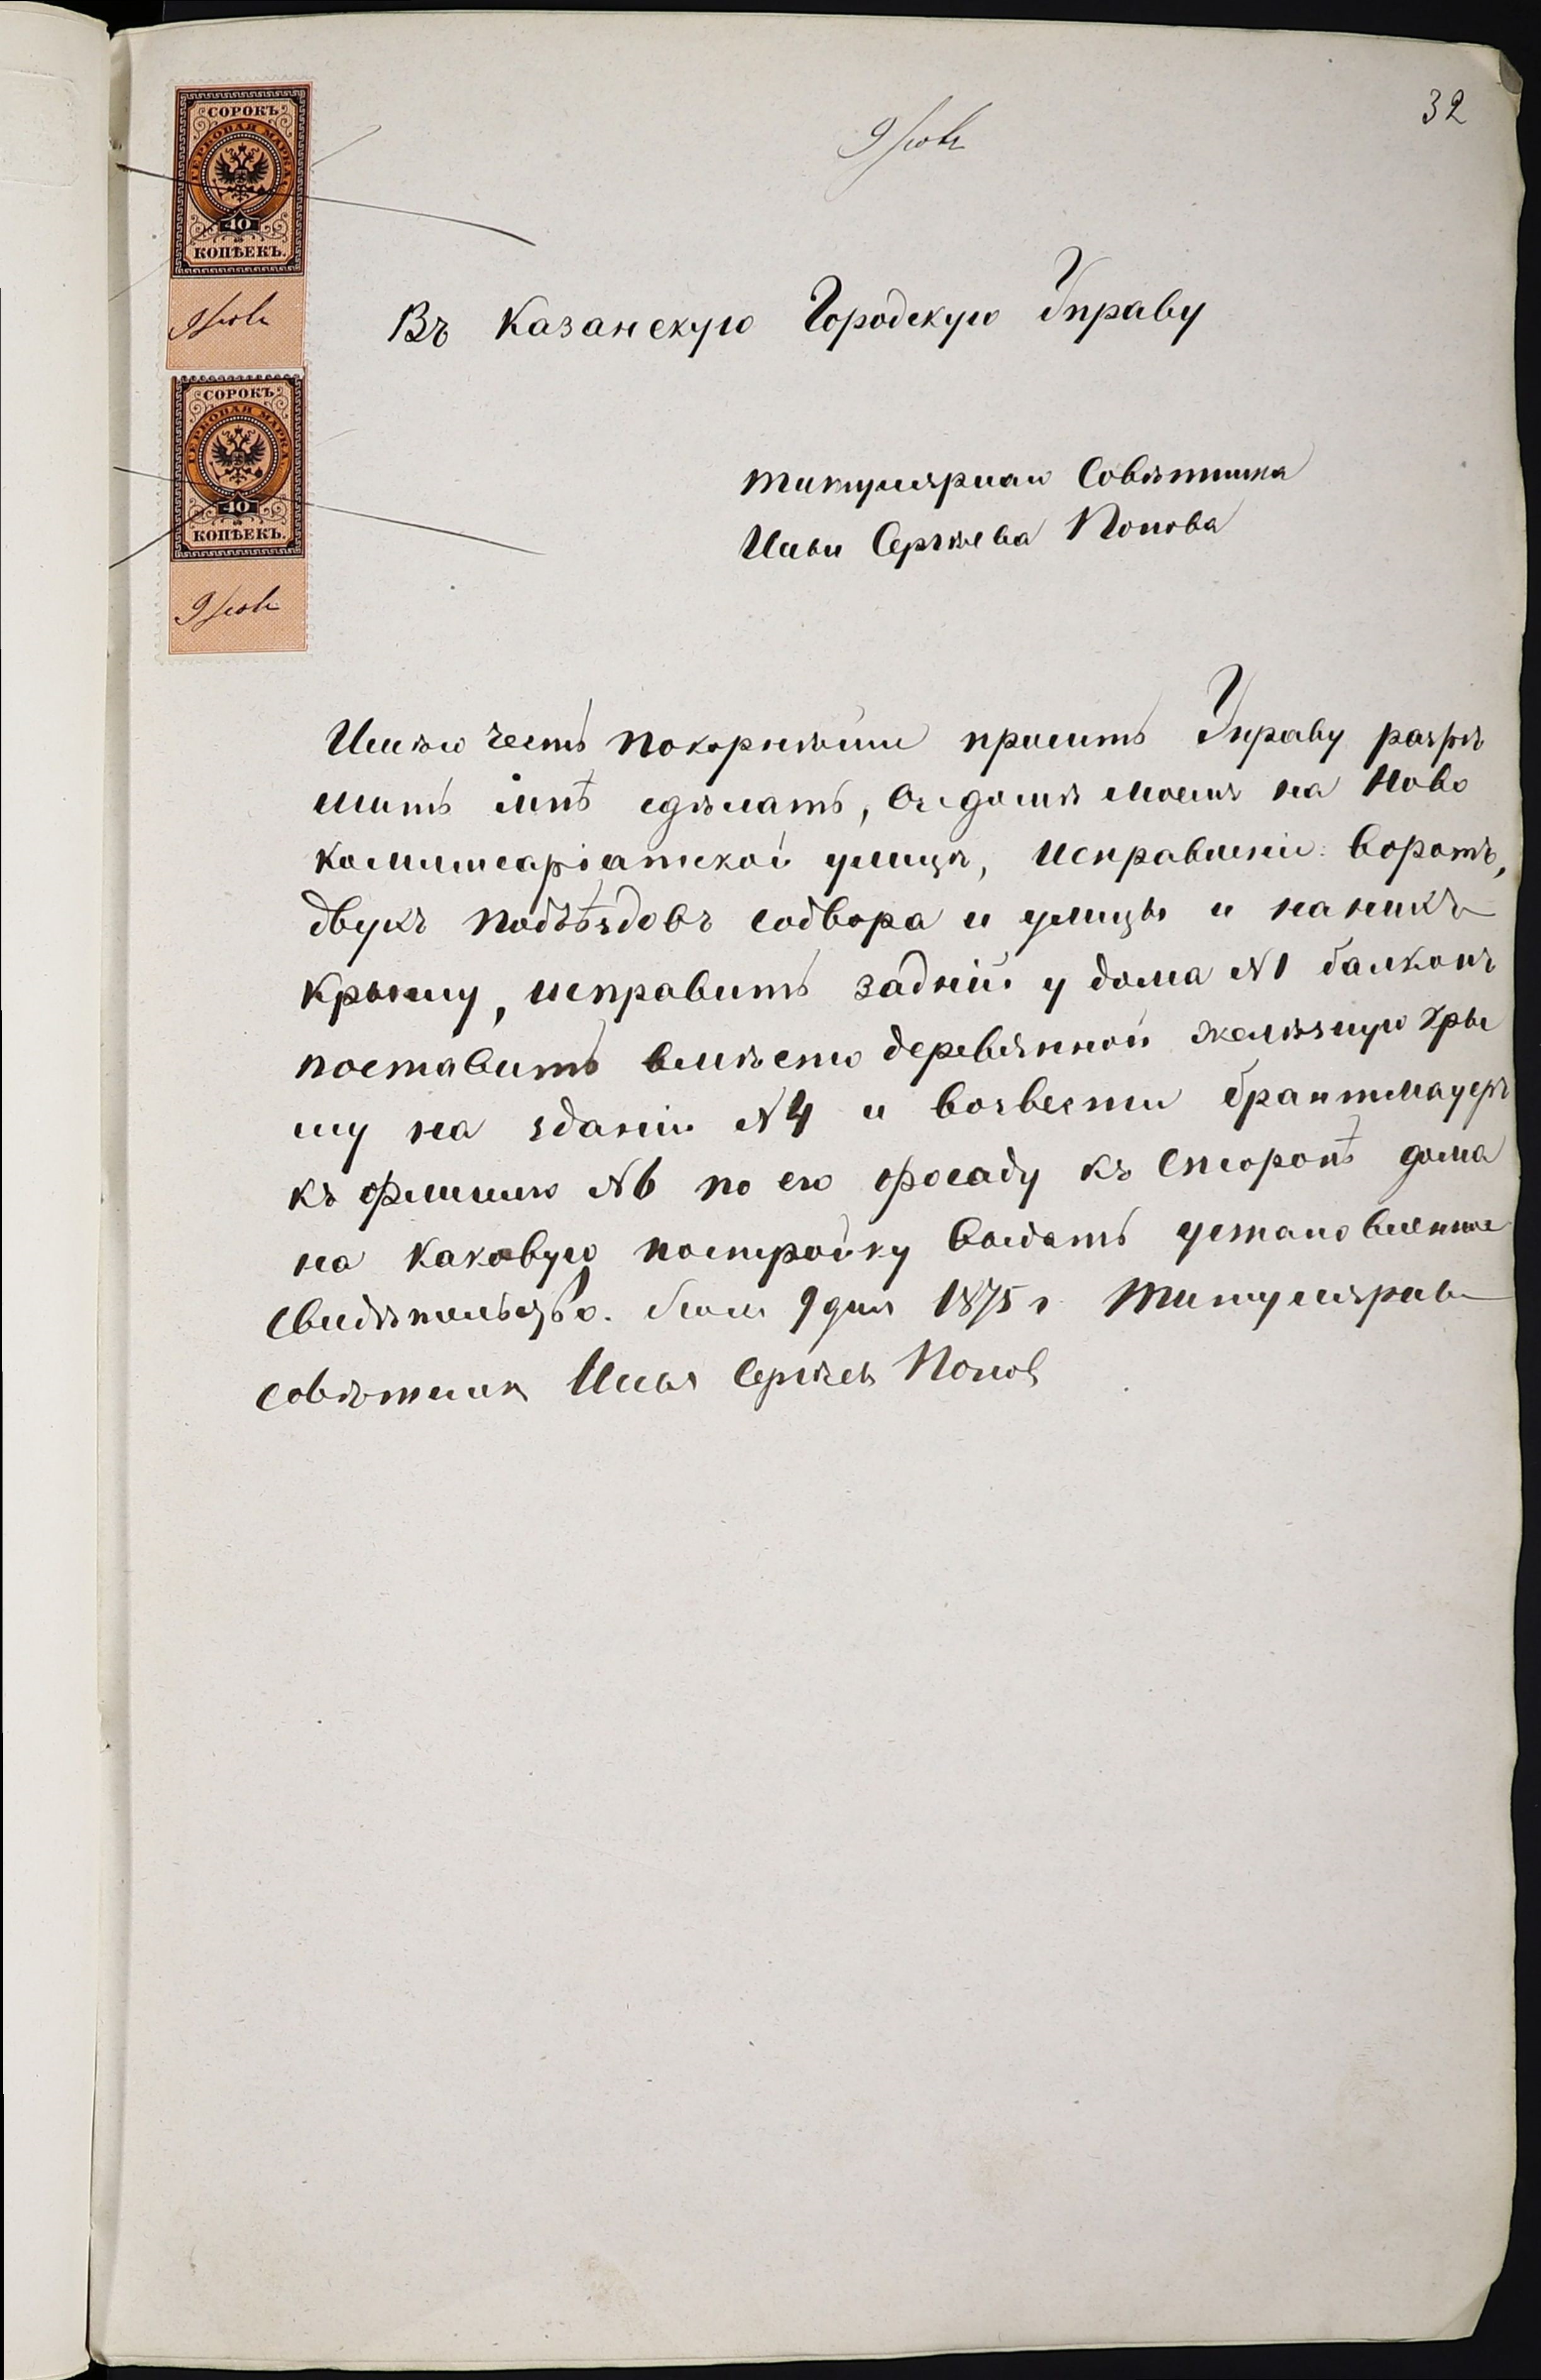 32
9 Іюля
СОРОКЪ
ГЕРБОВАЯ МАРКА
40
КОПѢЕКЪ.
9 Іюля
СОРОКЪ
ГЕРБОВАЯ МАРКА
40
КОПѢЕКЪ.
9 Іюля
Въ Казанскую Городскую Управу
титулярнаго Совѣтника
Ильи Сергѣева Попова
Имѣю честь покорнѣйше просить Управу разрѣ
шить мнѣ сдѣлать, въ домѣ моемъ на Ново
коммисаріатской улицѣ, исправленіе: воротъ,
двухъ подъѣздовъ содвора и улицы и на нихъ
крышу, исправить задній у дома №1 балконъ
поставить вмѣсто деревянной желѣзную кры
шу на зданіи №4 и возвести брантмауеръ
къ флигилю №6 по его фосаду къ сторонѣ дома
на каковую постройку выдать установленное
свидѣтельство. Іюля 9 дня 1875 г. Титулярный
совѣтникъ Илья Сергѣевъ Поповъ